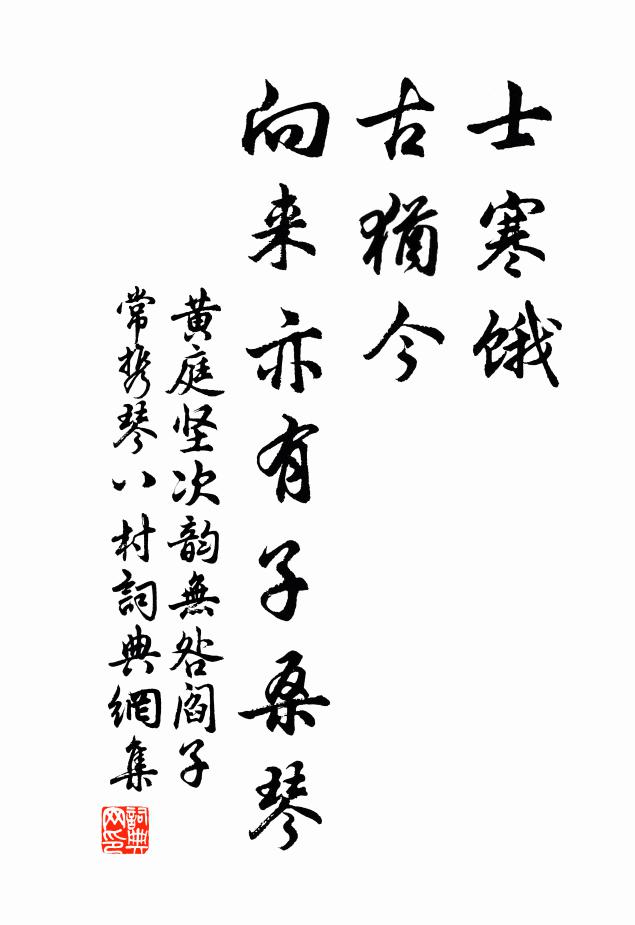 士寒饿
古犹今
向来亦有子桑琴
黄庭坚次韵無咎阎子
常携琴入村詞典網集
詞典
网印